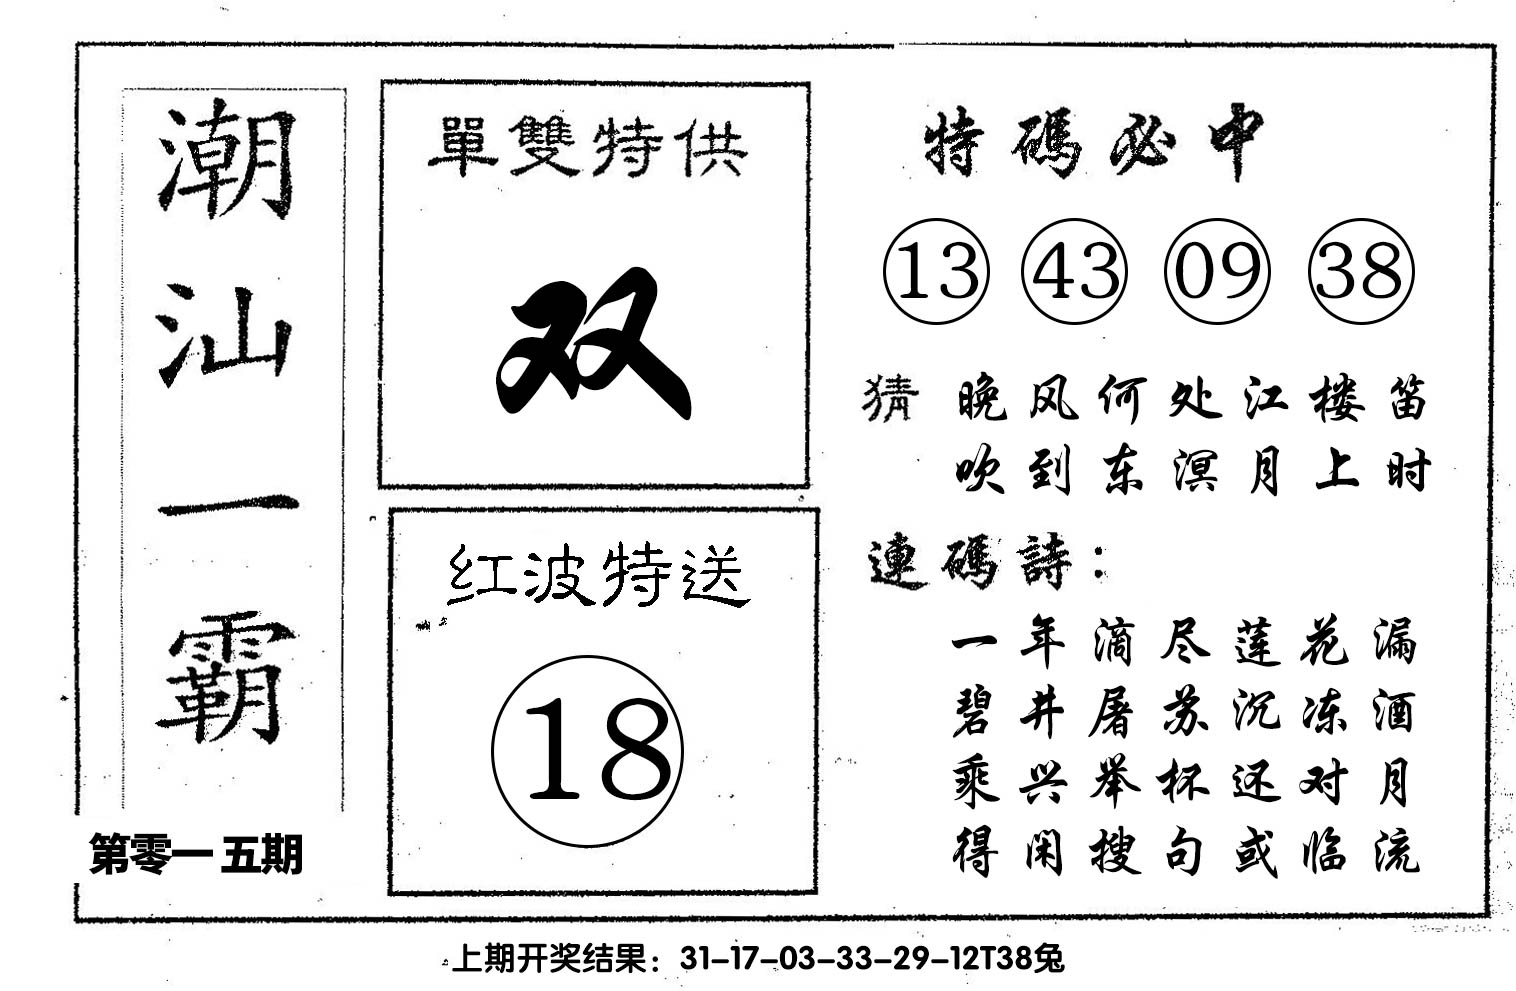 潮汕一霸
第零一五期
單雙特供
双
红波特送
18
特碼必中
13 43 09 38
猜 晚风何处江楼笛
吹到东溟月上时
連碼詩：
一年滴尽莲花漏
碧井屠苏沉冻酒
乘兴举杯还对月
得闲搜句或临流
上期开奖结果：31-17-03-33-29-12T38兔